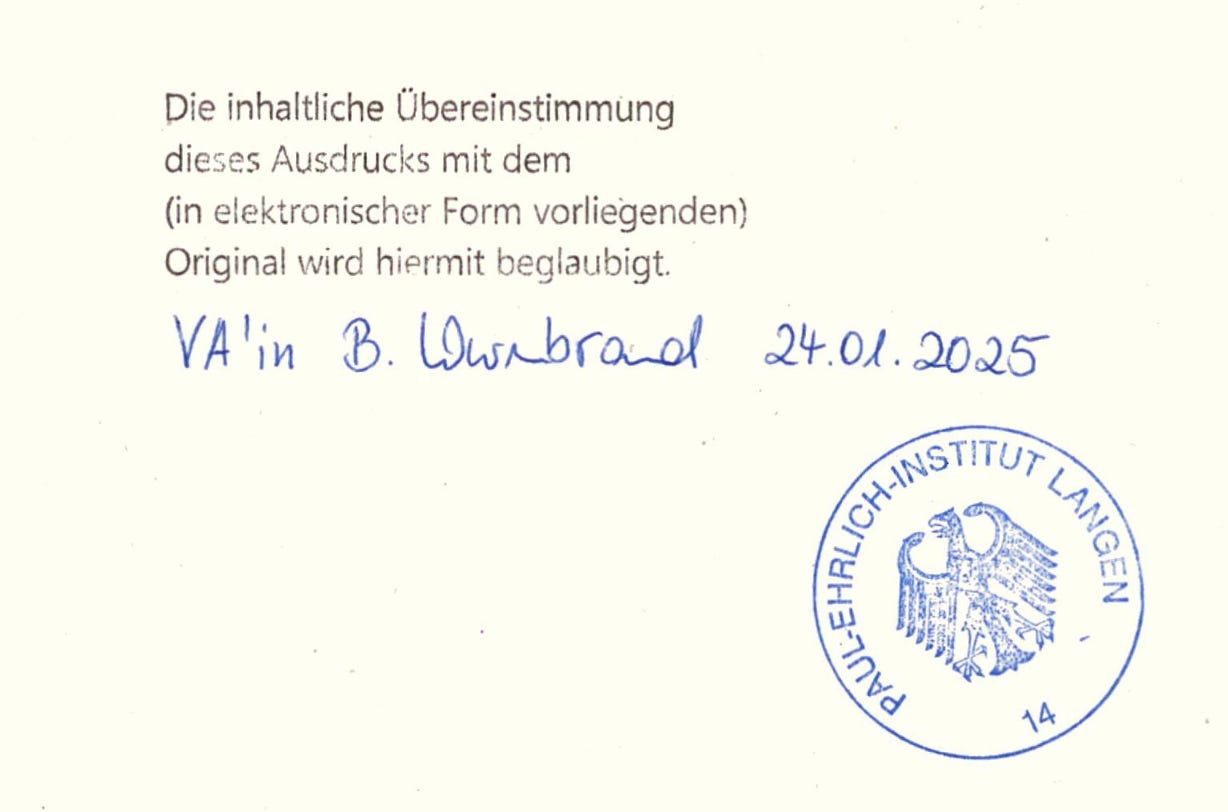 Die inhaltliche Übereinstimmung
dieses Ausdrucks mit dem
(in elektronischer Form vorliegenden)
Original wird hiermit beglaubigt.
VA'in B. 24.01.2025
PAUL-EHRLICH-INSTITUT LANGEN
14